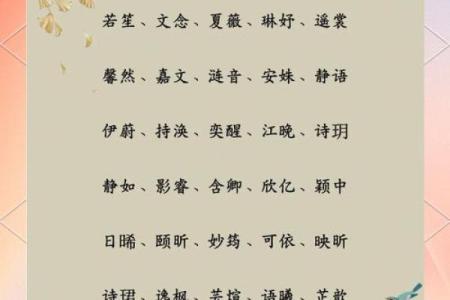 若笙、文念、夏薇、琳妤、遥裳
馨然、嘉文、涟音、安姝、静语
伊蔚、持涣、奕醒、江晚、诗玥
静如、影睿、含卿、欣亿、颖中
日晞、颐昕、妙筠、可依、映昕
诗珺、逸枫、芸煊、语曦、芷歆